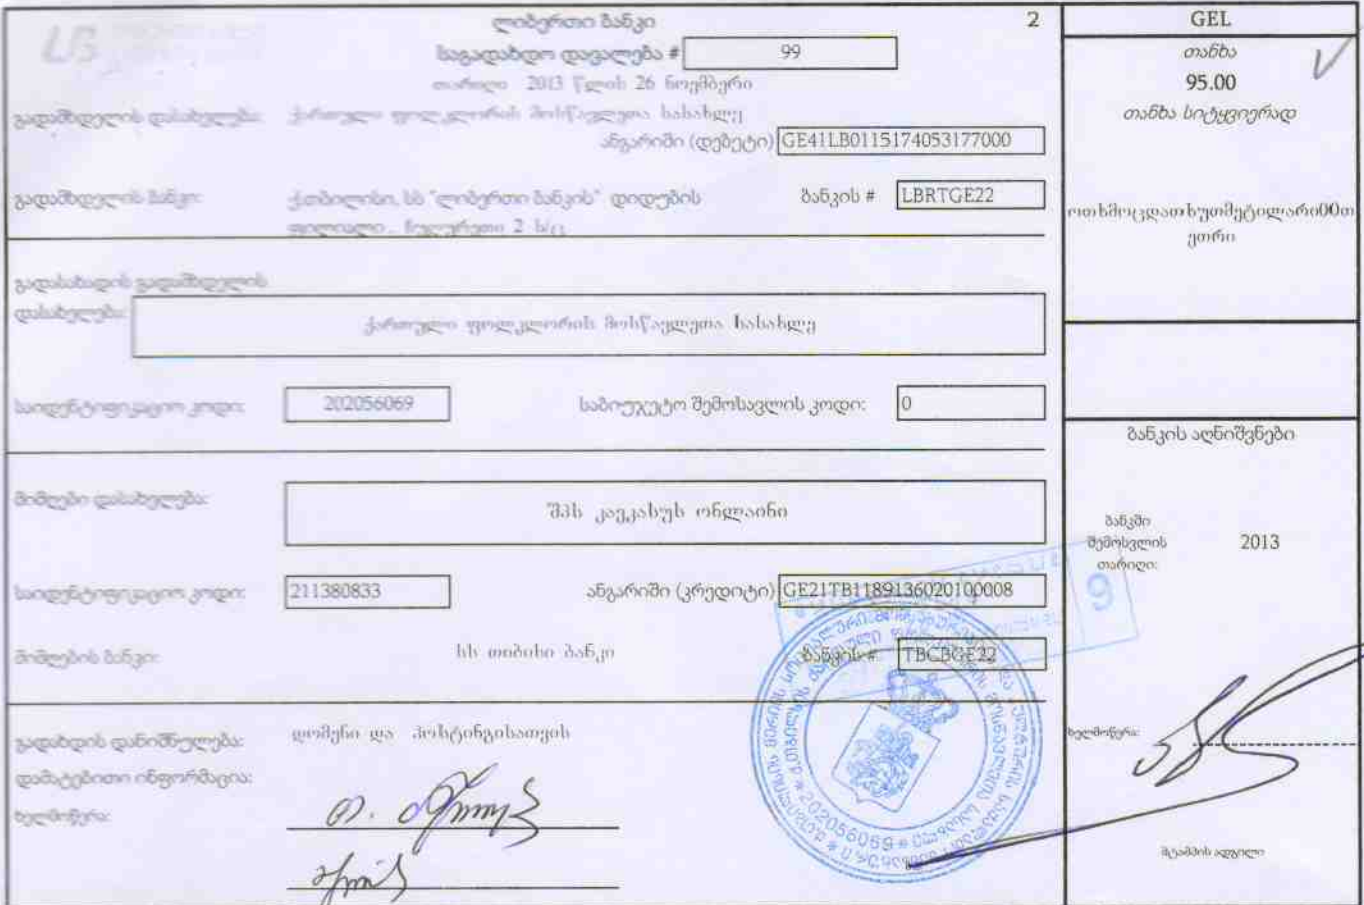 ლიბერთი ბანკი
2
საგადახდო დავალება # 99
თარიღი 2013 წლის 26 ნოემბერი
გადამხდელის დასახელება: ქართული ფოლკლორის მოსწავლეთა სასახლე
ანგარიში (დებეტი) GE41LB0115174053177000
გადამხდელის ბანკი: ქ.თბილისი, სს "ლიბერთი ბანკის" დიდუბის
ბანკის # LBRTGE22
ფილიალი, წულურეთი 2 ს/ც
გადასახადის გადამხდელის
დასახელება: ქართული ფოლკლორის მოსწავლეთა სასახლე
საიდენტიფიკაციო კოდი: 202056069 საბიუჯეტო შემოსავლის კოდი: 0
მიმღები დასახელება: შპს კავკასუს ონლაინი
საიდენტიფიკაციო კოდი: 211380833 ანგარიში (კრედიტი) GE21TB1189136020100008
მიმღების ბანკი: სს თიბისი ბანკი ბანკის # TBCBGE22
გადახდის დანიშნულება: დომენი და ჰოსტინგისათვის
დამატებითი ინფორმაცია:
ხელმოწერა:
GEL
თანხა
95.00
თანხა სიტყვიერად
ოთხმოცდათხუთმეტილარი00თ
ეთრი
ბანკის აღნიშვნები
ბანკში
შემოსვლის
თარიღი:
2013
9
ხელმოწერა:
შტამპის ადგილი
202056069